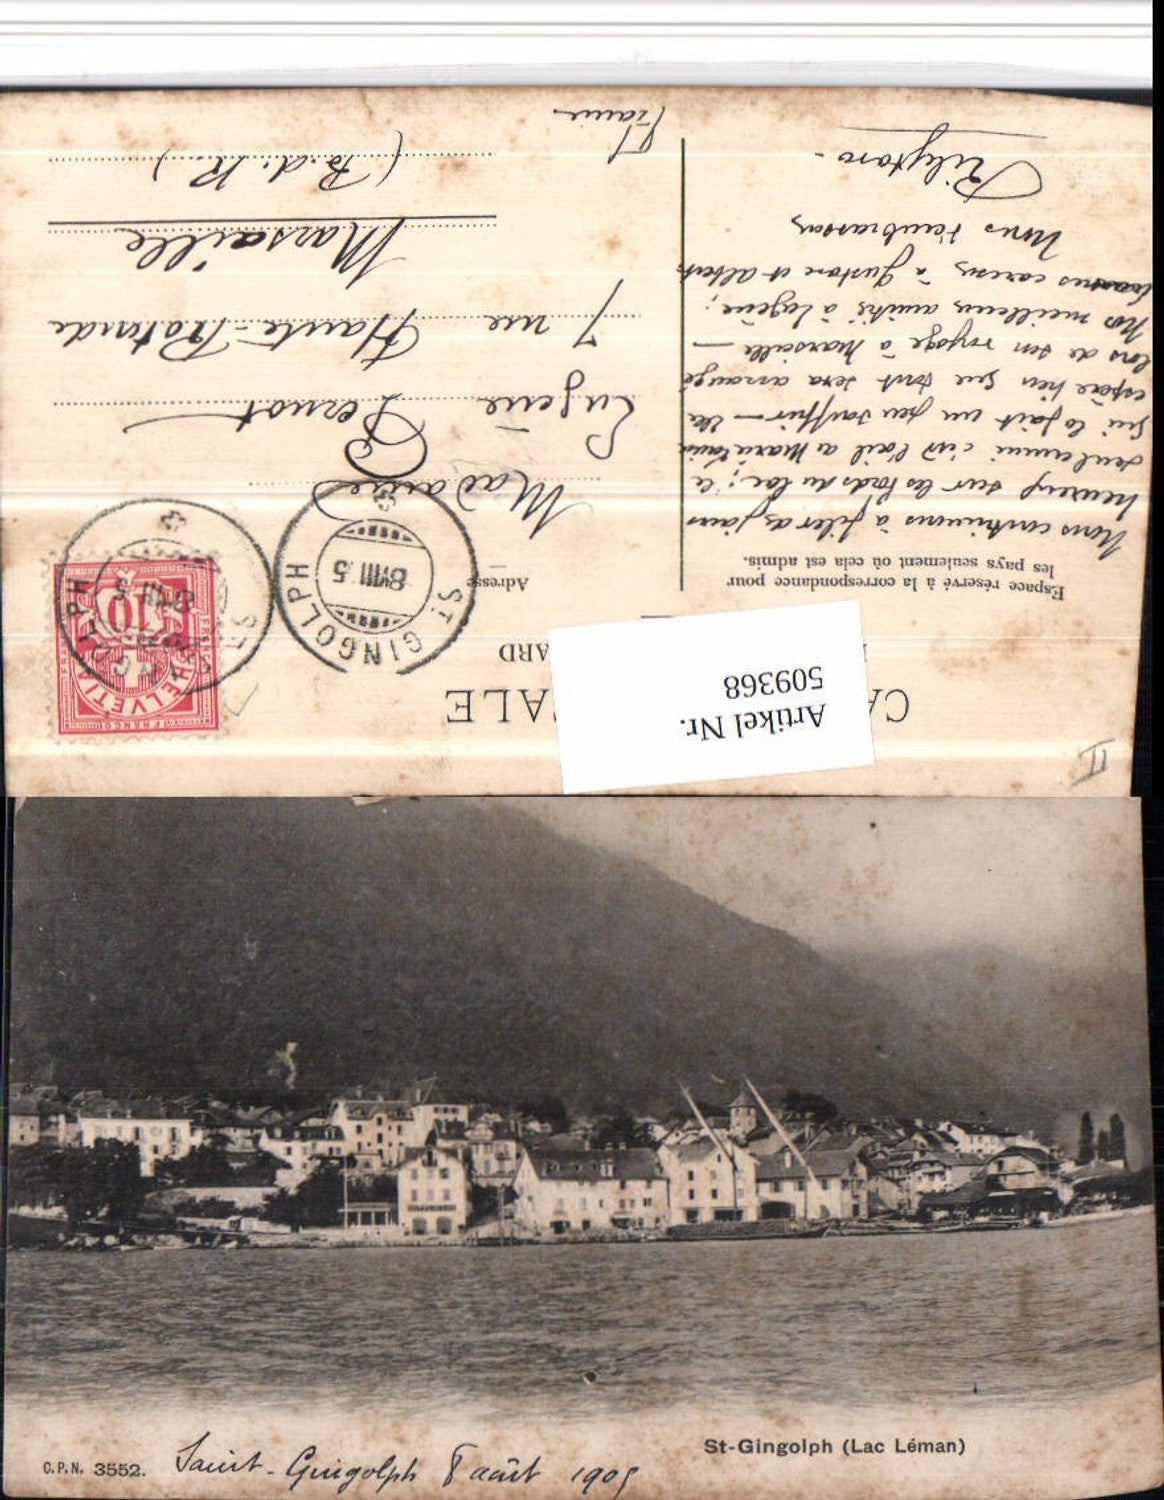 CA
ALE
ARD
Artikel Nr.
509368
Espace réservé à la correspondance pour
les pays seulement où cela est admis.
Adresse
Nous continuons à filer des jours
heureux sur les bords du lac; il
seulement c'est l'œil a
qui la fait un peu souffrir — Elle
espère bien que tout sera arrangé
lors de son voyage à Marseille —
Nos meilleures amitiés à Eugène;
bonnes caresses à Gustave et Albert
Nous t'embrassons
Madame
Eugène Pernot
7 rue Haute-Rotonde
Marseille
(B.d.R.)
France
ST GINGOLPH
8.VIII.5
ST GINGOLPH
8.VIII.5
HELVETIA
FRANCO
10
II
St-Gingolph (Lac Léman)
C.P.N. 3552.
Saint-Gingolph 8 août 1905